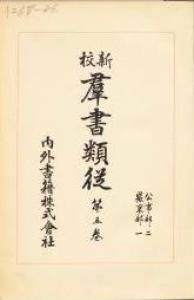 公事部二
装束部一
新校
羣書類從
第五卷
内外書籍株式會社